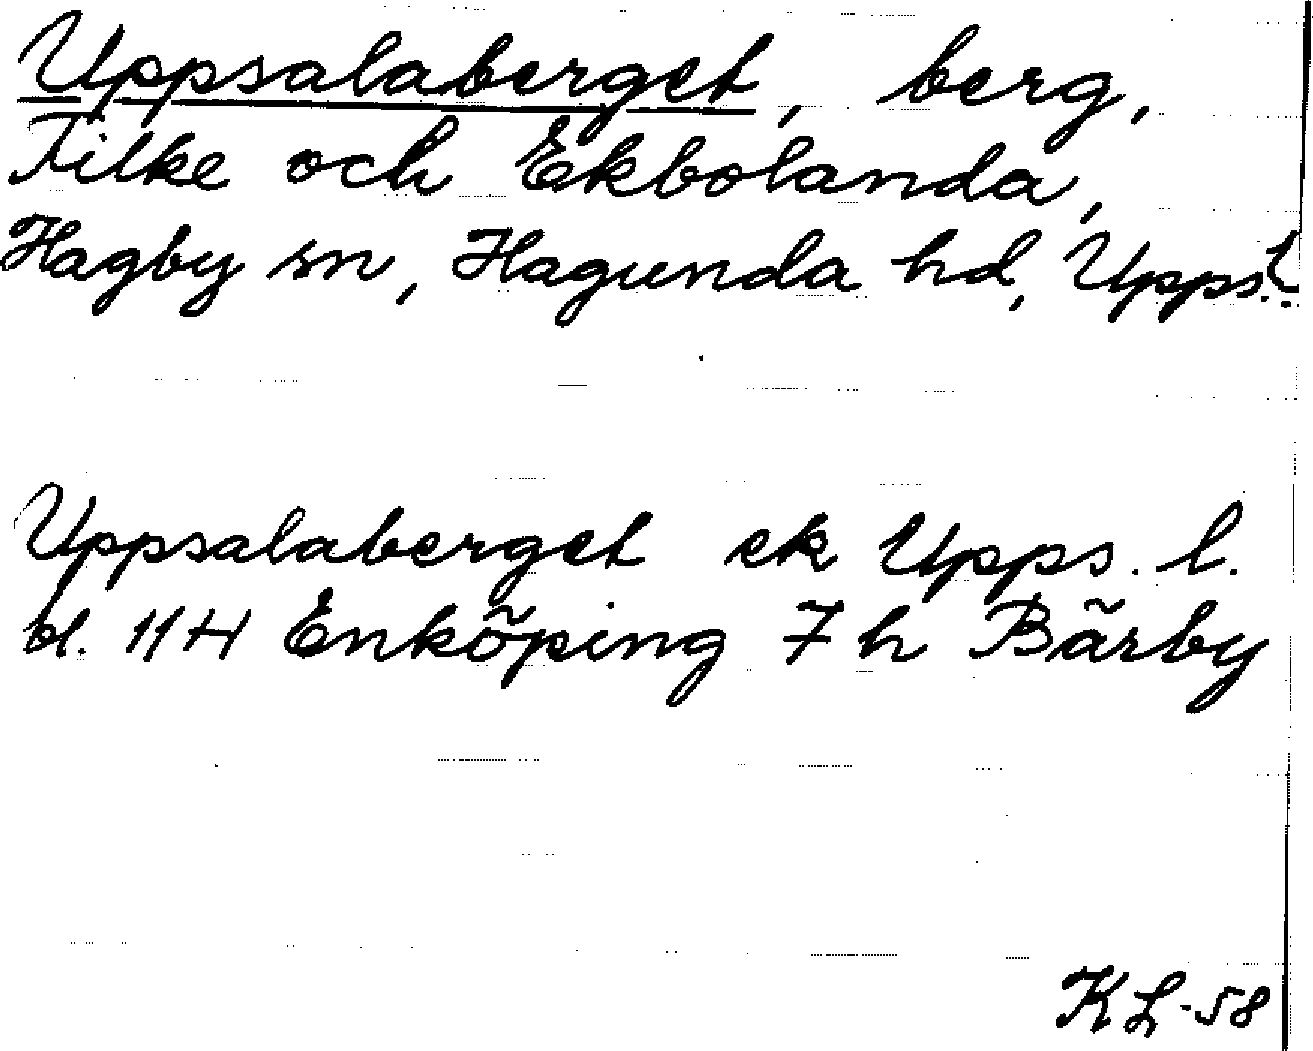 Uppsalaberget, berg,
Filke och Ekbolanda,
Hagby sn, Hagunda hd, Upps. l.
Uppsalaberget ek Upps. l.
bl. 11H Enköping 7h Bärby
KL-58